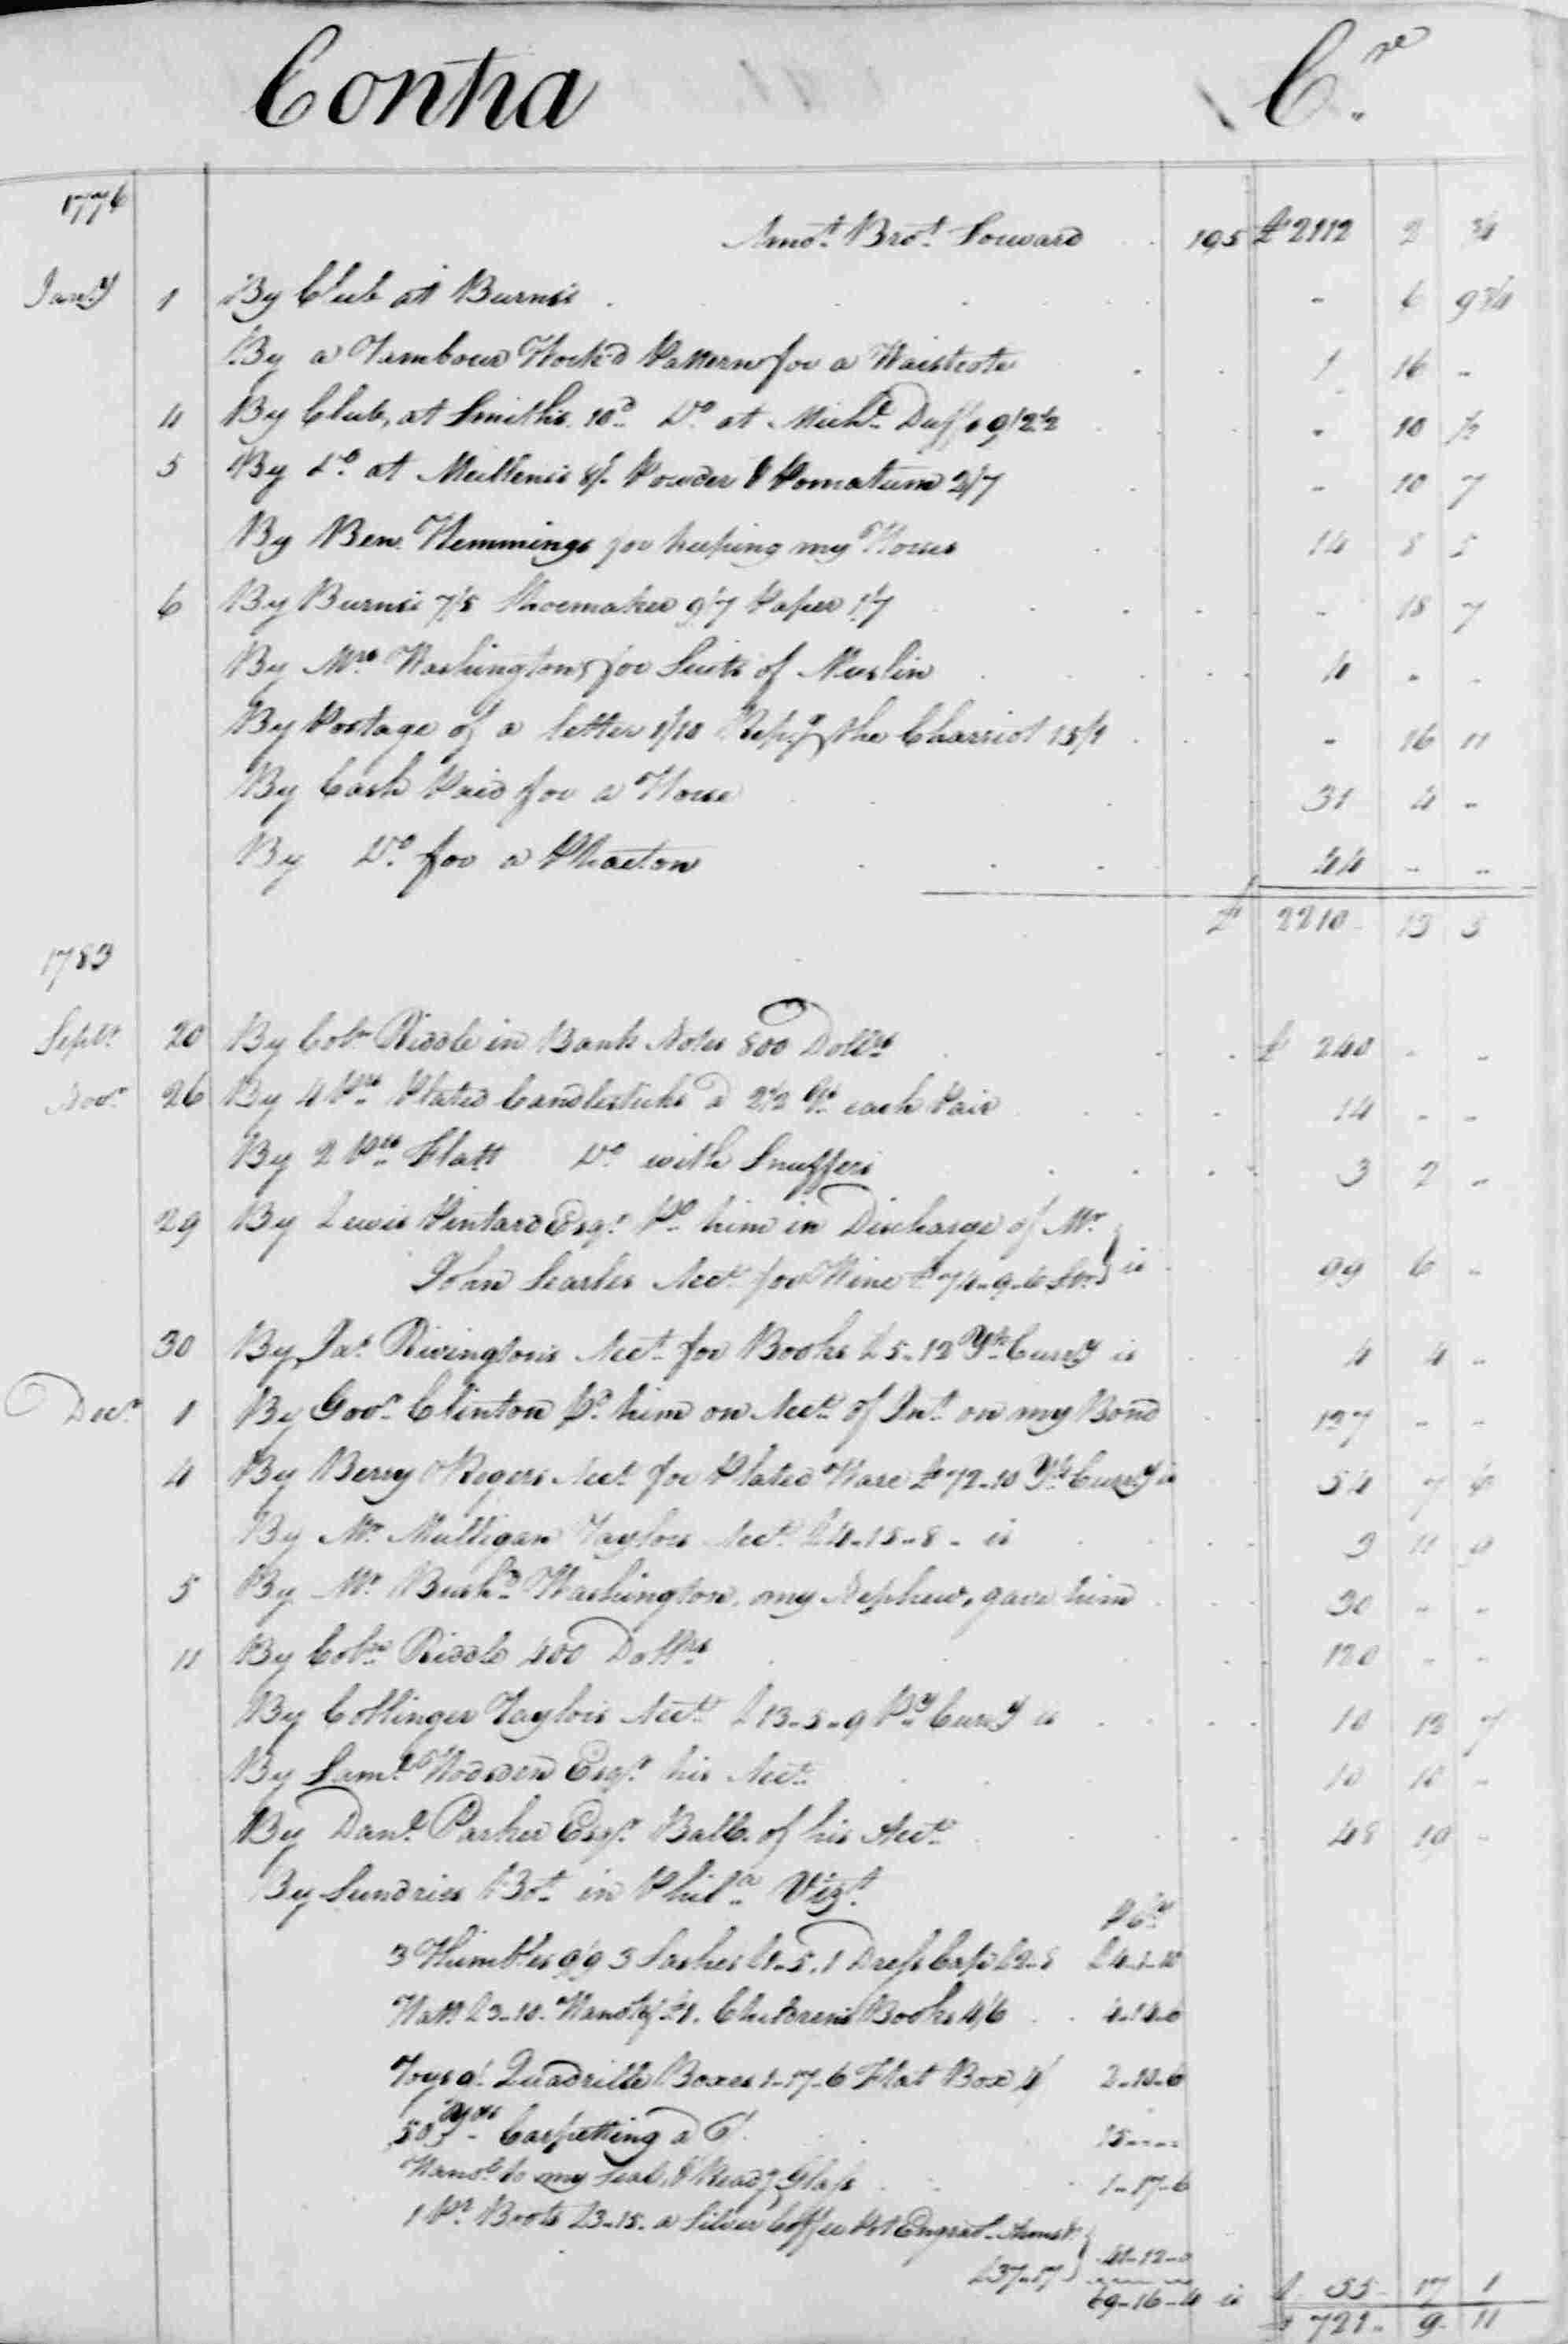 Contra Cre
1776
Amot. Brot. Forward 195 £2112 2 3/4
Jany 1 By Club at Burns's - 6 9 3/4
By a Tambour Work'd Pattern for a Waistcote 1 16 -
4 By Club, at Smiths. 10d Do at Michl. Duffs 9/2 1/2 - 10 1/2
5 By Do at Mullens's 8/. Powder & Pomatum 2/7 - 10 7
By Ben. Hemmings for keeping my Horses 14 8 5
6 By Burns's 7/5 Shoemaker 9/7 Paper 1/7 - 18 7
By Mrs Washington, for Suits of Muslin 4 - -
By Postage of a letter 1/10 Repg the Charriot 15/1 - 16 11
By Cash Paid for a Horse 31 4 -
By Do for a Phaeton 44 - -
£ 2210 13 3
1783
Septr. 20 By Colo. Biddle in Bank Notes 800 Dollrs £ 240 - -
Novr. 26 By 4 Prs Plated Candlesticks a 2 1/2 Gs each Pair 14 - -
By 2 Prs Flatt Do with Snuffers 3 2 -
29 By Lewis Pintard Esqr. Pd him in Discharge of Mr
John Searles Acct. for Wine £74-9-6 Str is 99 6 -
30 By Jas. Rivingtons Acct. for Books £5-12 Yk Curry is 4 4 -
Decr. 1 By Govr. Clinton pd. him on Acct. of Int. on my Bond 137 - -
4 By Berry & Rogers Acct. for Plated Ware £72-10 Yk Curry is 54 7 6
By Mr. Mulligan Taylors Acct. £4-15-8 - is 3 11 9
5 By Mr. Bushd. Washington, my Nephew, gave him 30 - -
11 By Colo. Biddle 400 Dollrs 120 - -
By Collinger Taylors Acct. £13-5-9 Pa Curry is 10 12 7
By Saml. Hodsden Esqr. his Acct. 10 18 -
By Danl. Parker Esqr. Balle. of his Acct. 48 10 -
By Sundries Bot. in Phila. Vizt.
3 Thimbles 9/9 3 Sashes £1-5. 1 Dress Cap £2-8
Hatt £3-10. Handkf £1. Childrens Books 4/6 4-14-6
Toys 9/. Quadrille Boxes 1-17-6 Flat Box 4/ 2-10-6
50 Yds. Carpetting a 6/. 15---
Handle to my Seal, & Readg Glass 1-17-6
1 Pr. Boots £3-15. a Silver Coffee Pot Engrad. Arms &c
£37-17 41-12-0
69-16-4 is £ 55 17 1
£ 721 - 9 - 11